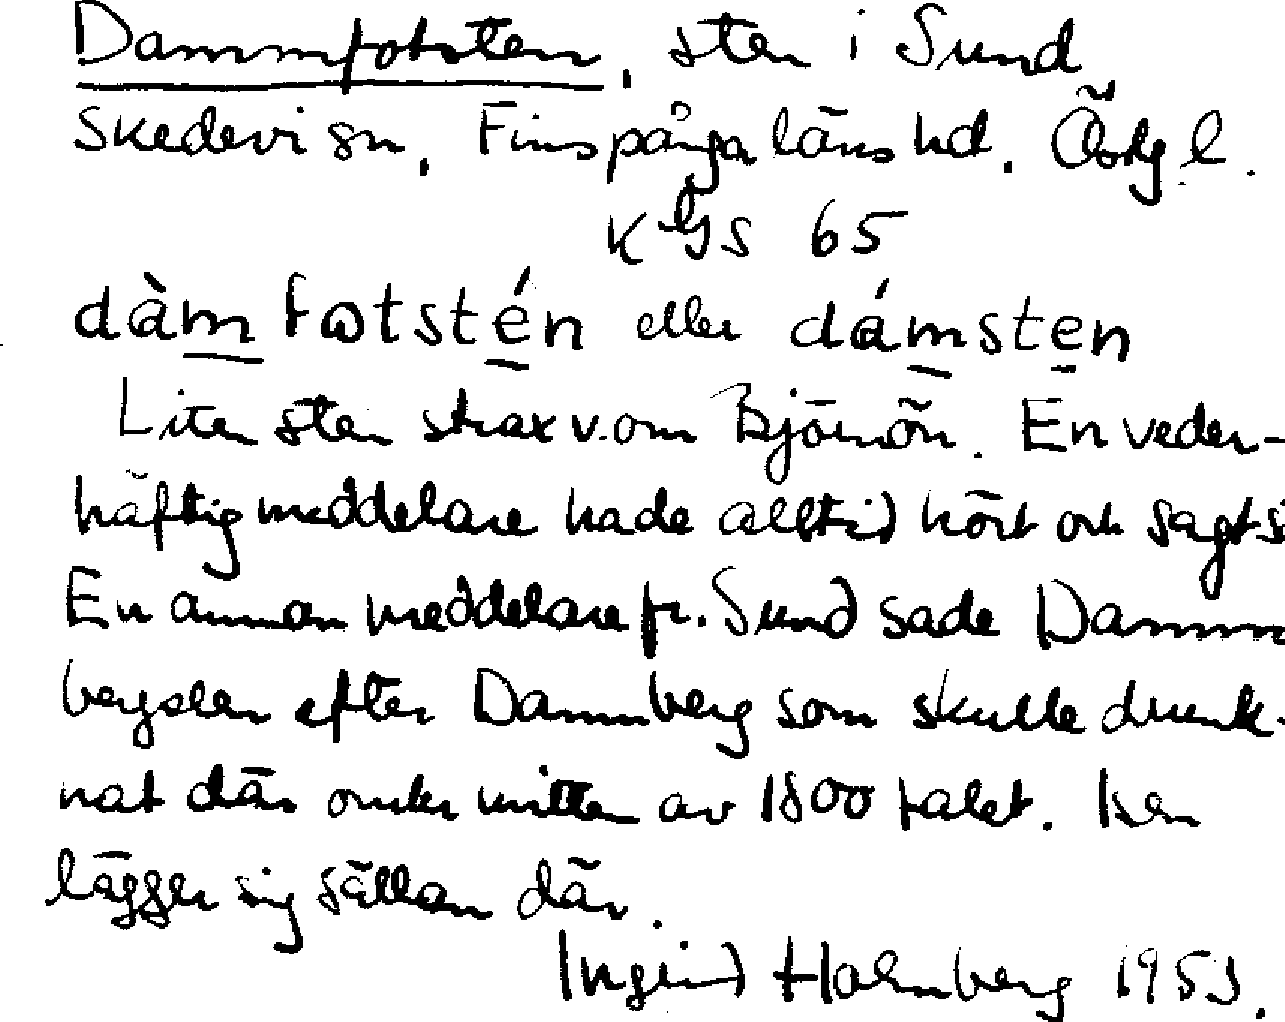 Dammfotsten, sten i Sund
Skedevi sn, Finspånga läns hd. Östg l.
K GS 65
dàm fɷtstén eller dámsten
Liten sten strax v. om Björnön. En veder-
häftig meddelare hade alltid hört och sagt så
En annan meddelare fr. Sund sade Damm
bergsten efter Dammberg som skulle drunk-
nat där under mitten av 1800 talet. Isen
lägger sig sällan där.
Ingrid Holmberg 1953.